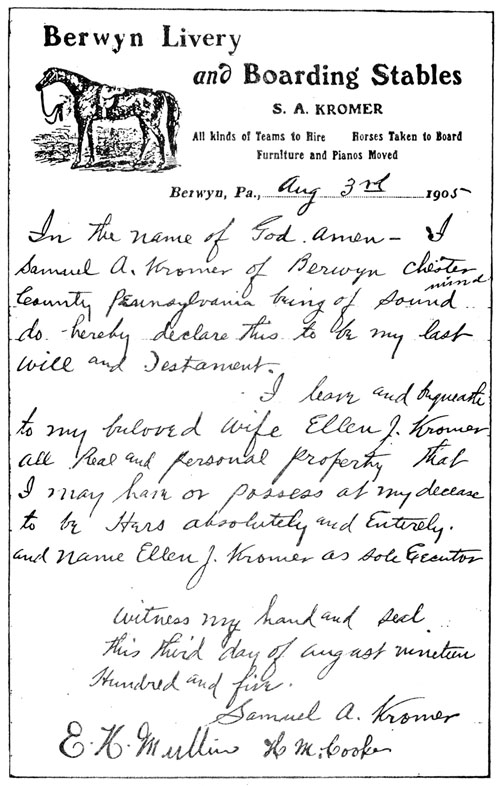 Berwyn Livery
and Boarding Stables
S. A. KROMER
All kinds of Teams to Hire Horses Taken to Board
Furniture and Pianos Moved
Berwyn, Pa., Aug 3rd 1905
In the name of God. Amen – I
Samuel A. Kromer of Berwyn Chester
County Pennsylvania being of Sound mind
do hereby declare this to be my last
will and Testament.
I leave and bequeathe
to my beloved wife Ellen J. Kromer
all Real and personal property that
I may have or possess at my decease
to be Hers absolutely and Entirely.
and name Ellen J. Kromer as sole Executor
Witness my hand and seal
this third day of august nineteen
Hundred and five.
Samuel A. Kromer
E. H. Mullin H. M. Cooke